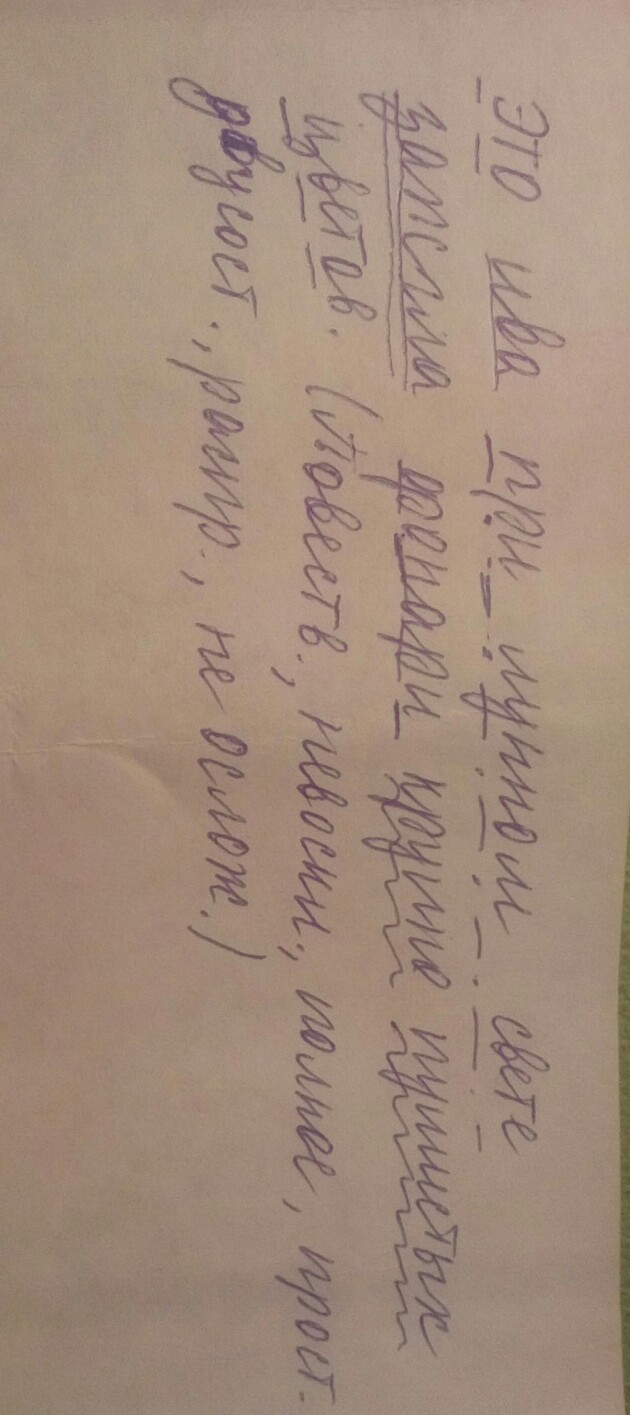 Это ива при лунном свете
зажгла фонари крупно пушистых
цветов. (Повеств., невоскл., полное, прост.
двусост., распр., не ослож.)